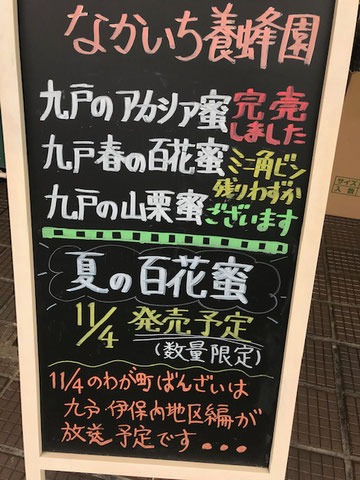 なかいち養蜂園
九戸のアカシア蜜 完売しました
九戸春の百花蜜 ミニ角ビン残りわずか
九戸の山栗蜜 ございます
夏の百花蜜
11/4 発売予定
(数量限定)
11/4のわが町ばんざいは
九戸・伊保内地区編が
放送予定です・・・